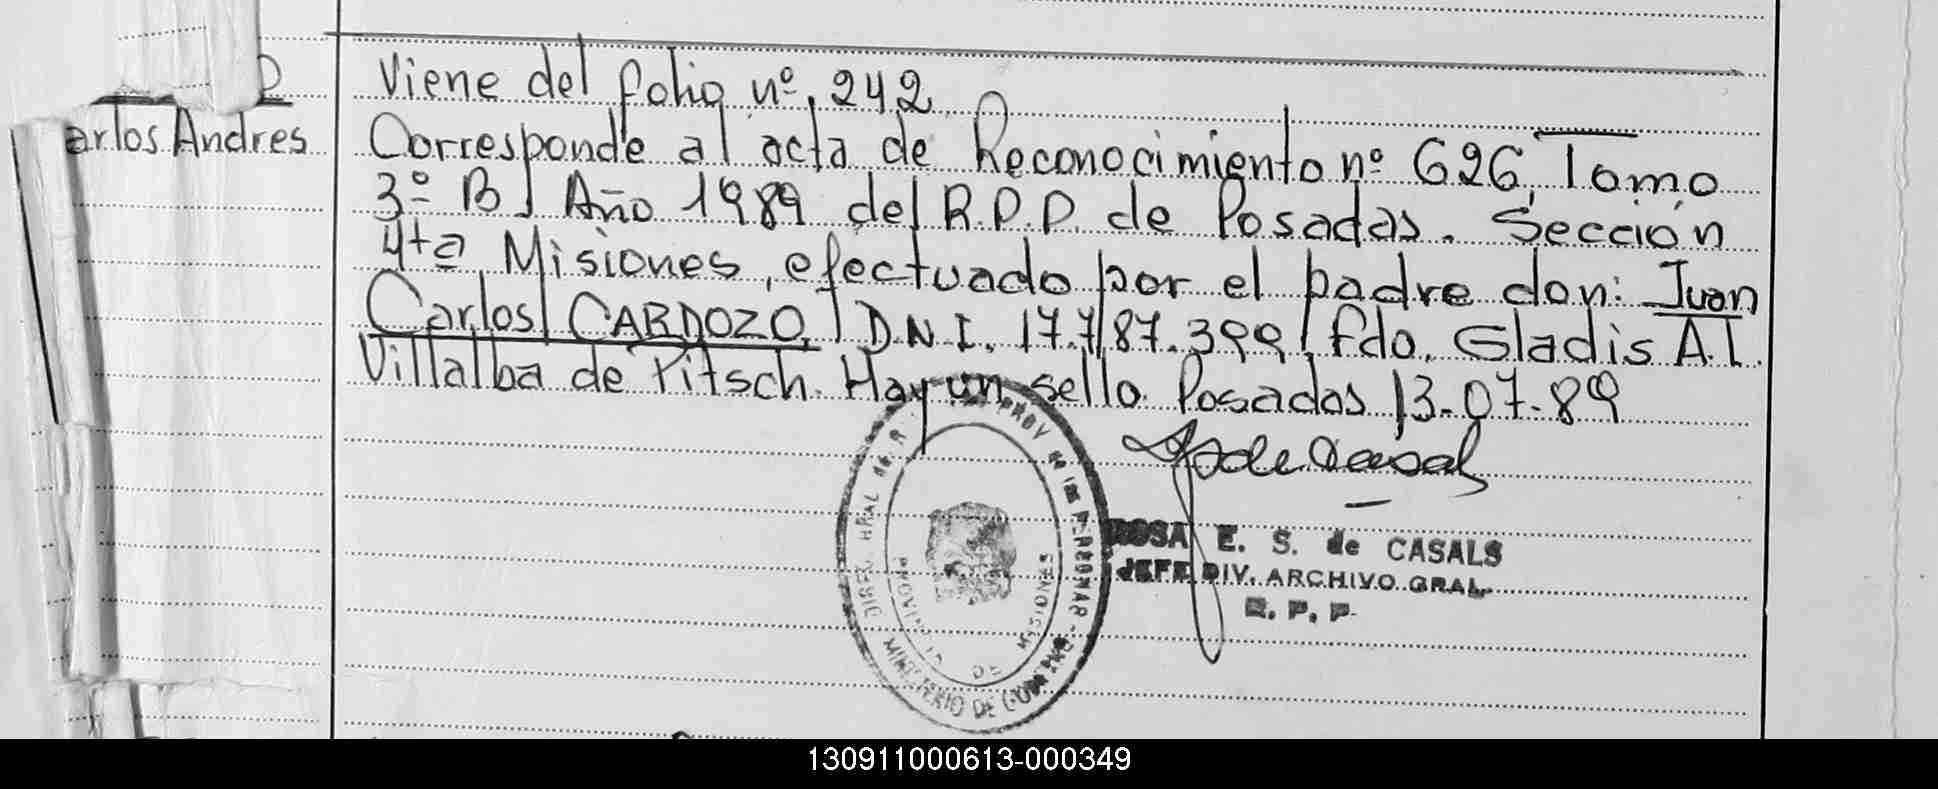 Viene del folio nº, 242
arlos Andres
Corresponde al acta de Reconocimiento nº 626, Tomo
3º B, Año 1989 del R.P.P. de Posadas. Sección
4ta Misiones, efectuado por el padre don: Juan
Carlos CARDOZO, D.N.I. 17.787.399, fdo. Gladis A.I.
Villalba de Pitsch. Hay un sello. Posadas 13-07-89
ROSA E. S. de CASALS
JEFE DIV. ARCHIVO GRAL.
R. P. P.
PROV de las PERSONAS - MINISTERIO DE GOBIERNO
PROVINCIA DE MISIONES
130911000613-000349